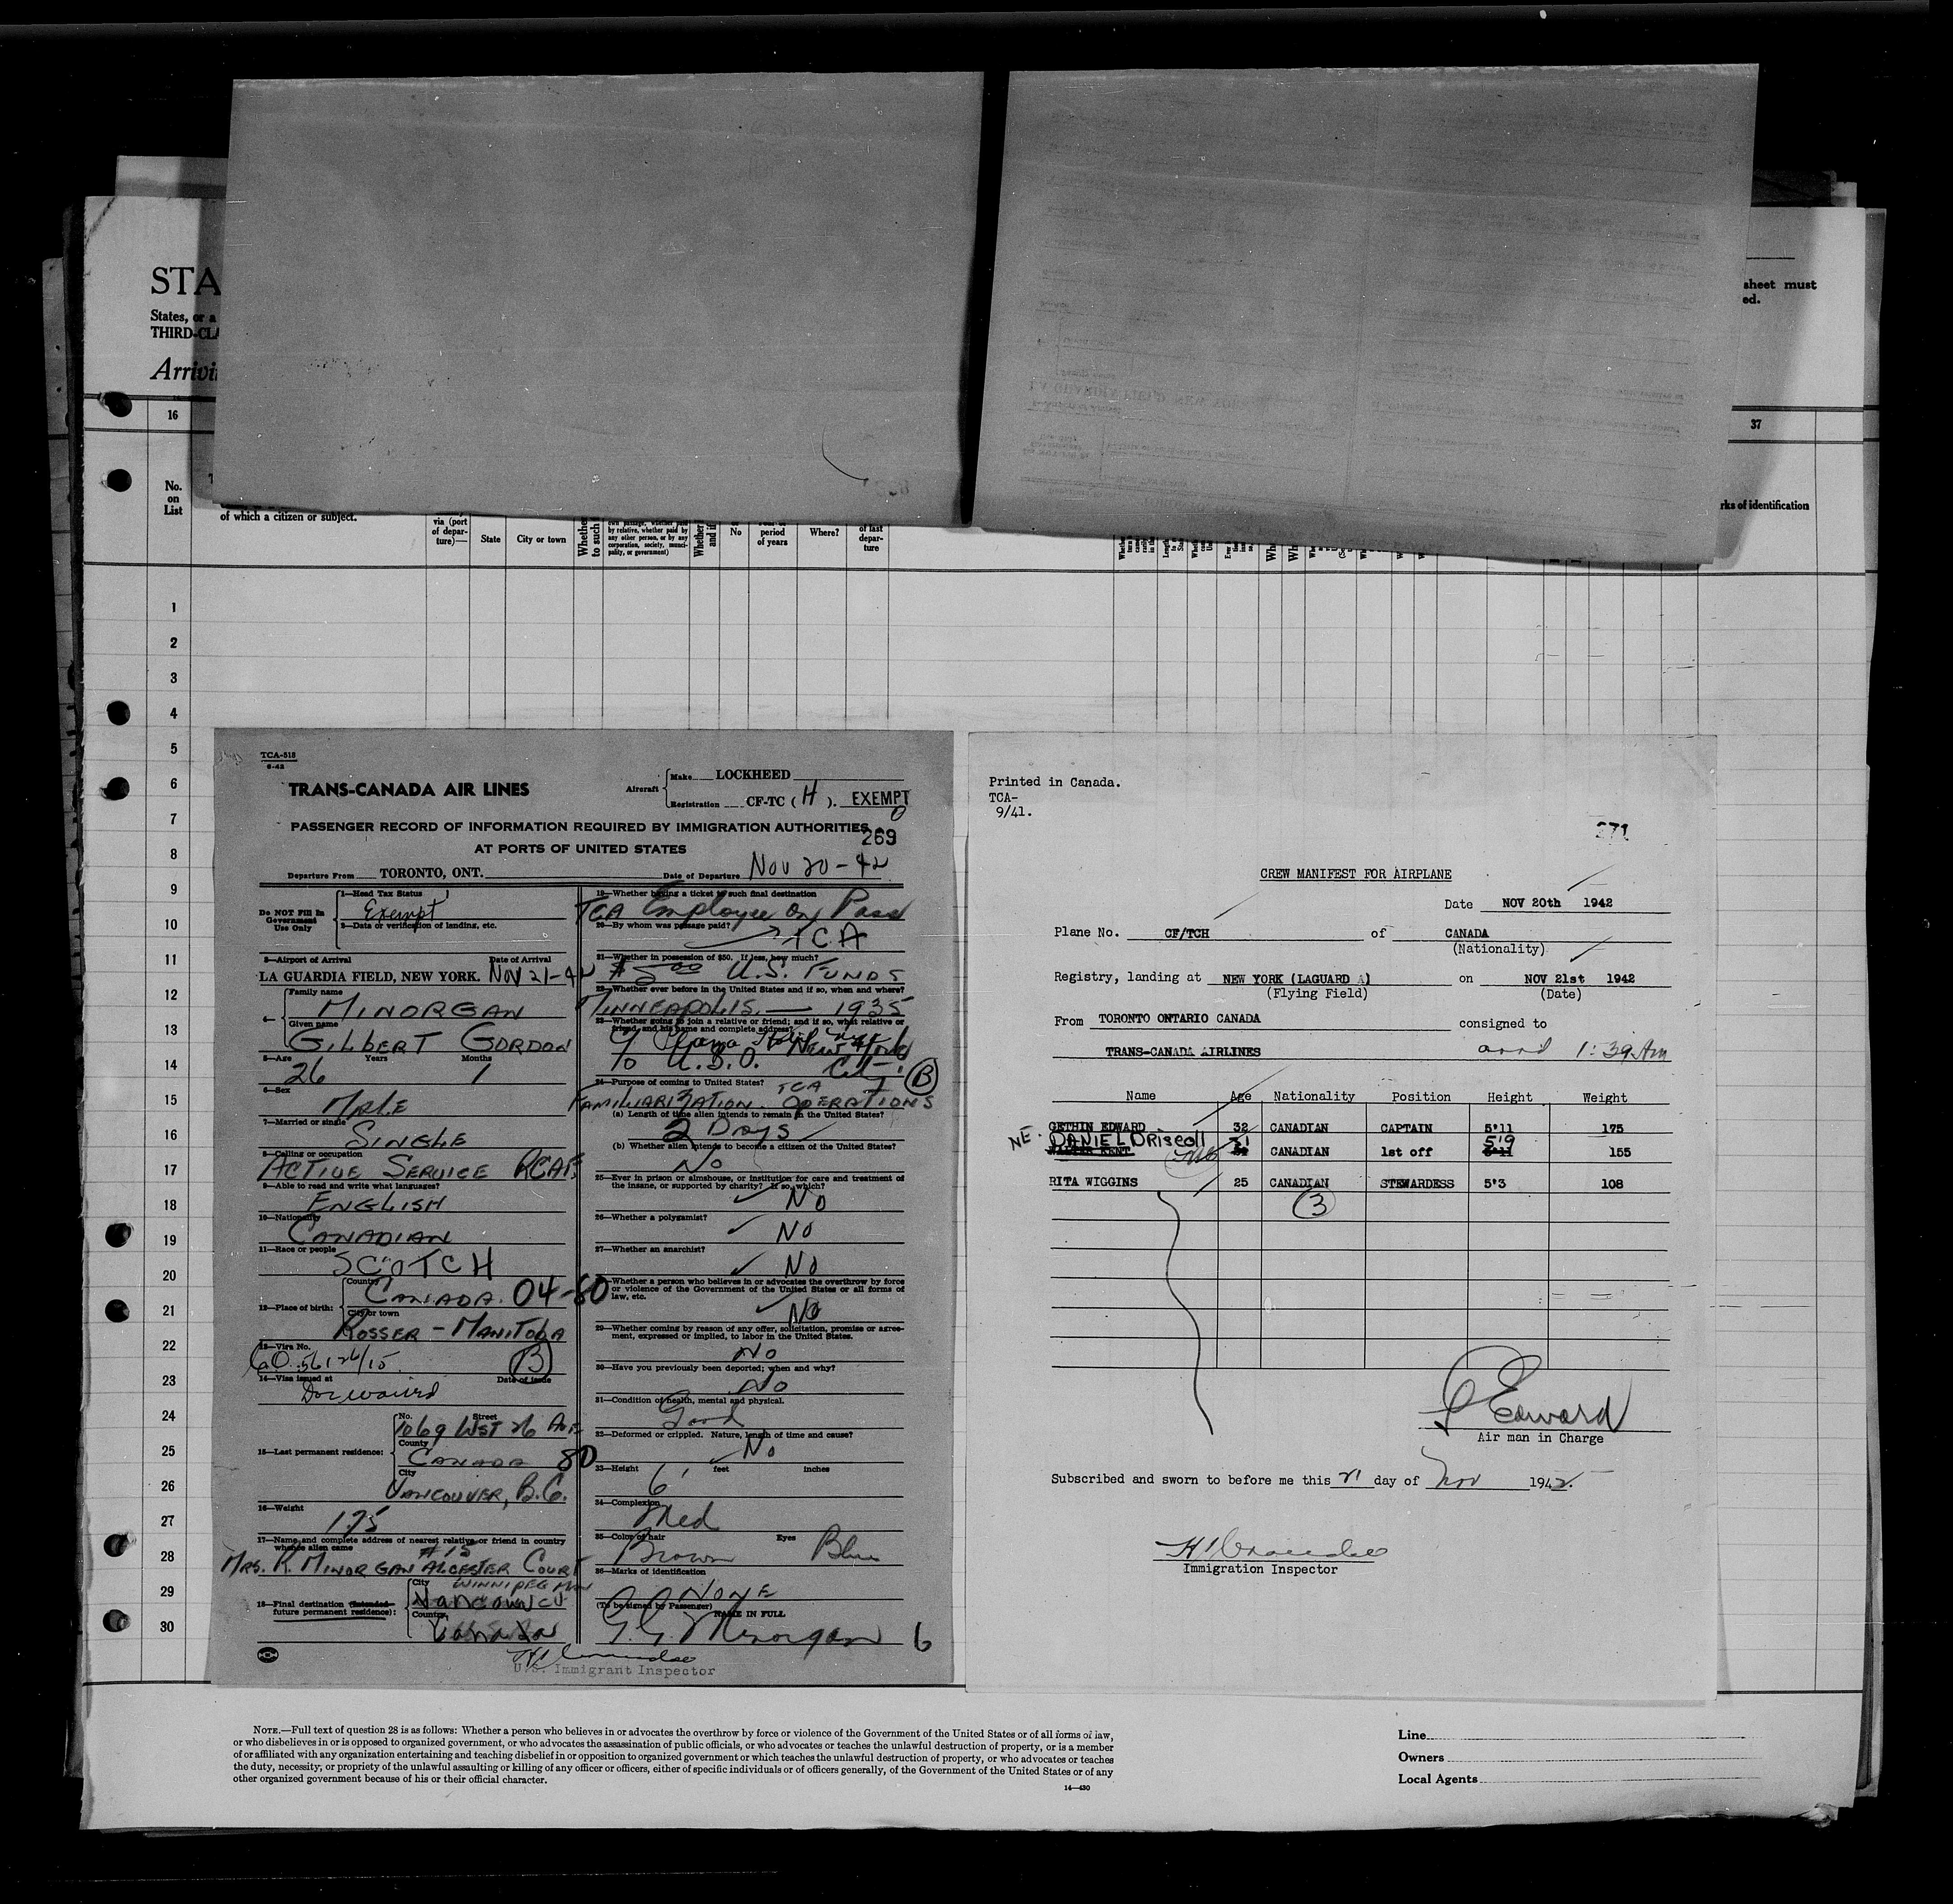 STA
States, or a
THIRD-CLA
Arrivi
sheet must
ed.
16
37
No.
on
List
of which a citizen or subject.
via (port
of depar-
ture)—
State
City or town
Whether
to such
own passage, whether paid
by relative, whether paid by
any other person, or by any
corporation, society, munici-
pality, or government)
Whether
and if
No
period
of years
Where?
of last
depar-
ture
rks of identification
1
2
3
4
5
6
7
8
9
10
11
12
13
14
15
16
17
18
19
20
21
22
23
24
25
26
27
28
29
30
TCA-515
6-42
TRANS-CANADA AIR LINES
Aircraft
Make LOCKHEED
Registration CF-TC ( H ). EXEMPT
0
PASSENGER RECORD OF INFORMATION REQUIRED BY IMMIGRATION AUTHORITIES
269
AT PORTS OF UNITED STATES
Departure From TORONTO, ONT. Date of Departure Nov 20-42
Do NOT Fill In
Government
Use Only
1—Head Tax Status
Exempt
2—Data or verification of landing, etc.
3—Airport of Arrival Date of Arrival
LA GUARDIA FIELD, NEW YORK. Nov 21-42
4—
Family name
MINORGAN
Given name
GILBERT GORDON
5—Age Years Months
26 1
6—Sex
MALE
7—Married or single
SINGLE
8—Calling or occupation
ACTIVE SERVICE RCAF
9—Able to read and write what languages?
ENGLISH
10—Nationality
CANADIAN
11—Race or people
SCOTCH
12—Place of birth:
Country
CANADA. 04-80
City or town
ROSSER - MANITOBA
13—Visa No.
B
14—Visa issued at Date of issue
15—Last permanent residence:
No. Street
1069 WST 26 AVE
County
CANADA 80
City
VANCOUVER, B.C.
16—Weight
175
17—Name and complete address of nearest relative or friend in country
whence alien came
#15
MRS. K. MINORGAN ALCESTER COURT
WINNIPEG MAN
18—Final destination (intended
future permanent residence):
City
Vancouver
Country
Canada
19—Whether having a ticket to such final destination
TCA Employee on Pass
20—By whom was passage paid?
TCA
21—Whether in possession of $50. If less, how much?
$5.00 U.S. FUNDS
22—Whether ever before in the United States and if so, when and where?
MINNEAPOLIS — 1935
23—Whether going to join a relative or friend; and if so, what relative or
friend, and his name and complete address?
New York
% U.S.O. City B
24—Purpose of coming to United States?
TCA
FAMILIARIZATION OPERATIONS
(a) Length of time alien intends to remain in the United States?
2 Days
(b) Whether alien intends to become a citizen of the United States?
No
25—Ever in prison or almshouse, or institution for care and treatment of
the insane, or supported by charity? If so, which?
No
26—Whether a polygamist?
No
27—Whether an anarchist?
No
28—Whether a person who believes in or advocates the overthrow by force
or violence of the Government of the United States or all forms of
law, etc.
No
29—Whether coming by reason of any offer, solicitation, promise or agree-
ment, expressed or implied, to labor in the United States.
No
30—Have you previously been deported; when and why?
No
31—Condition of health, mental and physical.
Good
32—Deformed or crippled. Nature, length of time and cause?
No
33—Height 6' feet inches
34—Complexion
Med
35—Color of hair Eyes
Brown Blue
36—Marks of identification
NONE
(To be signed by Passenger) NAME IN FULL
G.G. Minorgan 6
U.S. Immigrant Inspector
Printed in Canada.
TCA-
9/41.
271
CREW MANIFEST FOR AIRPLANE
Date NOV 20th 1942
Plane No. CF/TCH of CANADA
(Nationality)
Registry, landing at NEW YORK (LAGUARD A) on NOV 21st 1942
(Flying Field) (Date)
From TORONTO ONTARIO CANADA consigned to
TRANS-CANADA AIRLINES arrd 1:39 Am
Name Age Nationality Position Height Weight
GETHIN EDWARD 32 CANADIAN CAPTAIN 5'11 175
NE. DANIEL DRISCOLL 31 5'9
WALTER KENT CANADIAN 1st off 5'11 155
RITA WIGGINS 25 CANADIAN STEWARDESS 5'3 108
3
G Edward
Air man in Charge
Subscribed and sworn to before me this 21 day of Nov 1942.
Immigration Inspector
NOTE.—Full text of question 28 is as follows: Whether a person who believes in or advocates the overthrow by force or violence of the Government of the United States or of all forms of law,
or who disbelieves in or is opposed to organized government, or who advocates the assassination of public officials, or who advocates or teaches the unlawful destruction of property, or is a member
of or affiliated with any organization entertaining and teaching disbelief in or opposition to organized government or which teaches the unlawful destruction of property, or who advocates or teaches
the duty, necessity, or propriety of the unlawful assaulting or killing of any officer or officers, either of specific individuals or of officers generally, of the Government of the United States or of any
other organized government because of his or their official character.
14—430
Line
Owners
Local Agents